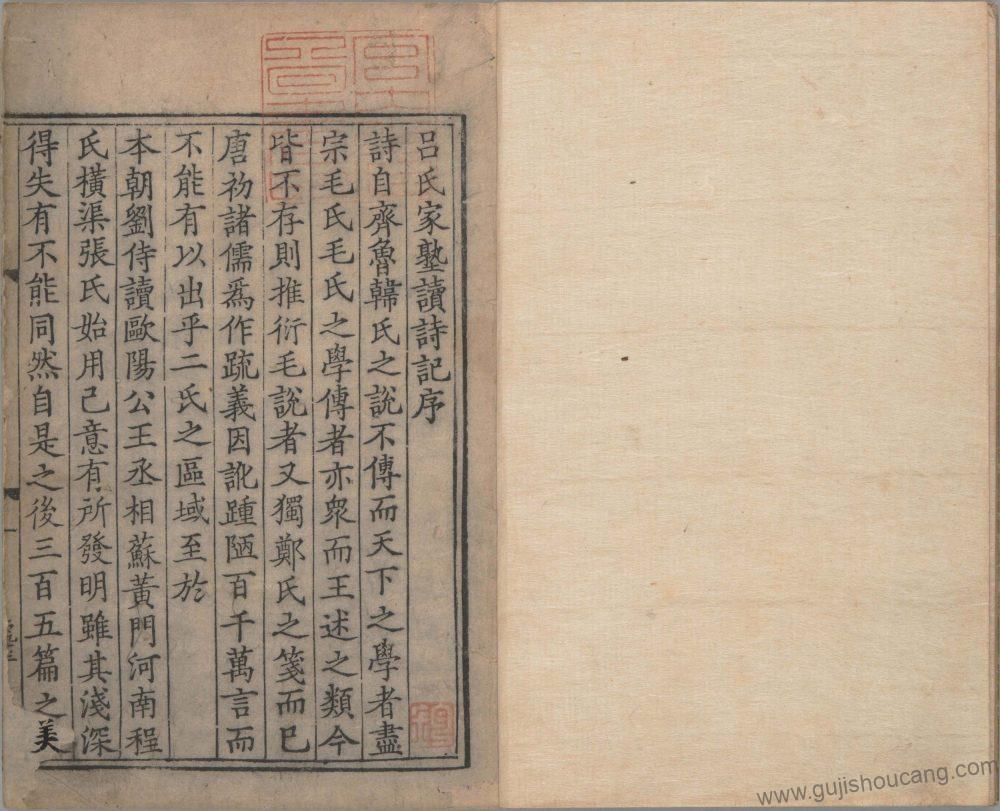 吕氏家塾讀詩記序
詩自齊魯韓氏之說不傳而天下之學者盡
宗毛氏毛氏之學傳者亦衆而王述之類今
皆不存則推衍毛說者又獨鄭氏之箋而已
唐初諸儒爲作疏義因訛踵陋百千萬言而
不能有以出乎二氏之區域至於
本朝劉侍讀歐陽公王丞相蘇黃門河南程
氏橫渠張氏始用己意有所發明雖其淺深
得失有不能同然自是之後三百五篇之美
www.gujishoucang.com